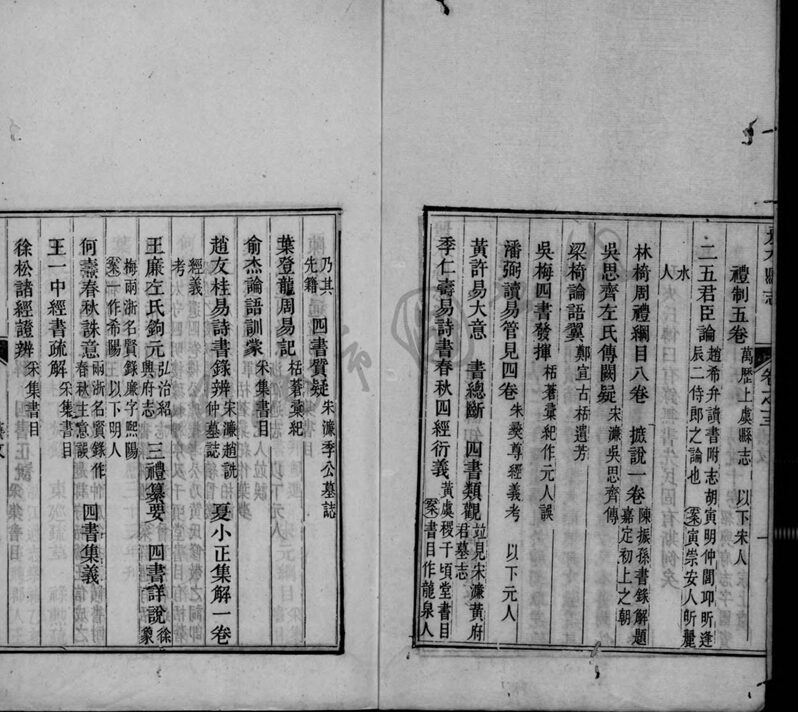 禮制五卷 萬歷上虞縣志 以下宋人
二五君臣論 趙希弁讀書附志胡寅明仲閭邛昕逢
辰二侍郎之論也 案寅崇安人昕麗
水
人
林椅周禮綱目八卷 摭說一卷 陳振孫書錄解題
嘉定初上之朝
吳思齊左氏傳闕疑 宋濂吳思齊傳
梁椅論語翼 鄭宣古栝遺芳
吳梅四書發揮 栝蒼彙紀作元人誤
潘弼讀易管見四卷 朱彝尊經義考 以下元人
黃許易大意 書總斷 四書類觀 竝見宋濂黃府
君墓志
季仁壽易詩書春秋四經衍義 黃虞稷千頃堂書目
案書目作龍泉人
卷之十三
乃其 四書質疑 宋濂季公墓誌
先籍
葉登龍周易記 栝蒼彙紀
俞杰論語訓蒙 朱集書目
趙友桂易詩書錄辨 宋濂趙詵
仲墓誌 夏小正集解一卷
經義
考
王廉左氏鉤元 弘治紹
興府志 三禮纂要 四書詳說 徐
象
梅兩浙名賢錄廉字熙陽
案一作希陽 以下明人
何壽春秋誅意 兩浙名賢錄作
春秋主意誤 四書集義
王一中經書疏解 朱集書目
徐松諸經證辨 朱集書目